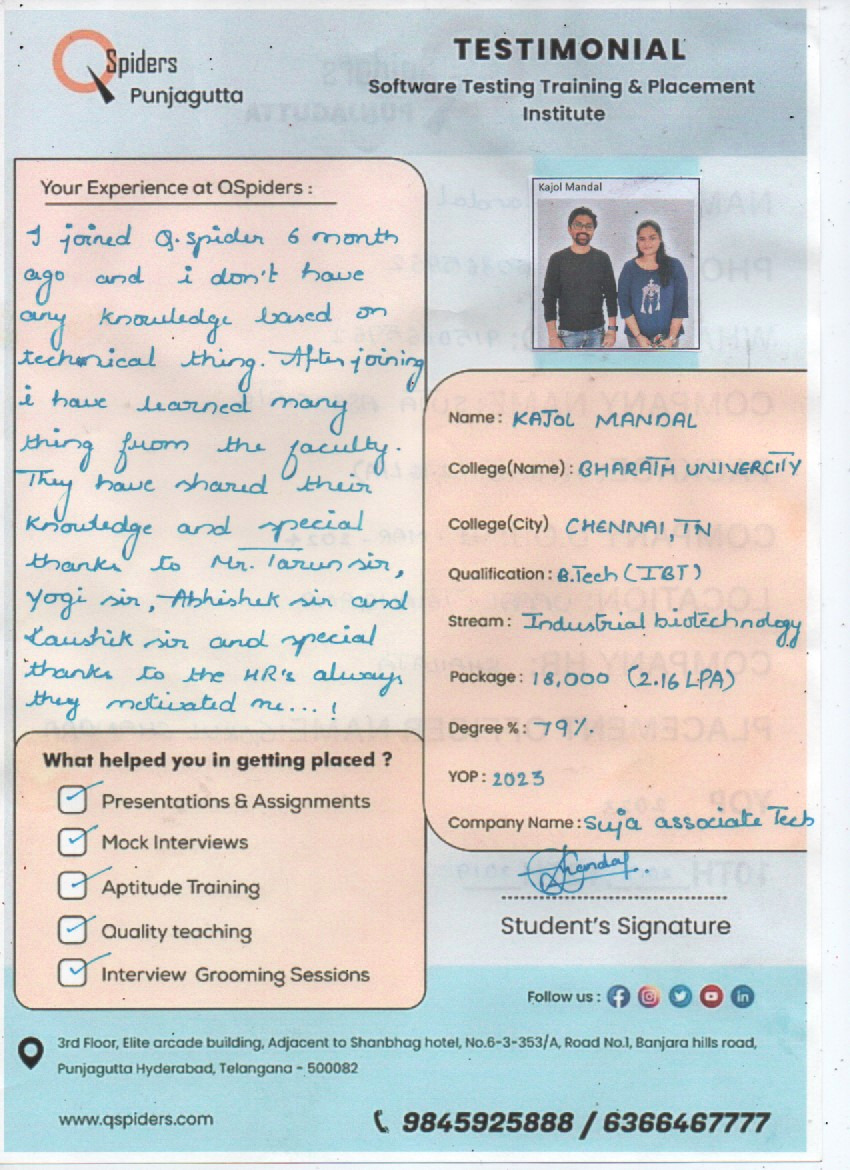 QSpiders
Punjagutta
TESTIMONIAL
Software Testing Training & Placement
Institute
Your Experience at QSpiders :
I joined Q.spider 6 month
ago and i don't have
any knowledge based on
technical thing. After joining
i have learned many
thing from the faculty.
They have shared their
knowledge and special
thanks to Mr. Tarun sir,
Yogi sir, Abhishek sir and
Kaushik sir and special
thanks to the HR's always
they motivated me...!
Kajol Mandal
Name : KAJOL MANDAL
College(Name) : BHARATH UNIVERCITY
College(City) CHENNAI, TN
Qualification : B.Tech (IBT)
Stream : Industrial biotechnology
Package : 18,000 (2.16 LPA)
Degree %: 79%
YOP : 2023
Company Name : Suja associate Tech
Student's Signature
What helped you in getting placed ?
Presentations & Assignments
Mock Interviews
Aptitude Training
Quality teaching
Interview Grooming Sessions
Follow us :
3rd Floor, Elite arcade building, Adjacent to Shanbhag hotel, No.6-3-353/A, Road No.1, Banjara hills road,
Punjagutta Hyderabad, Telangana - 500082
www.qspiders.com
9845925888 / 6366467777